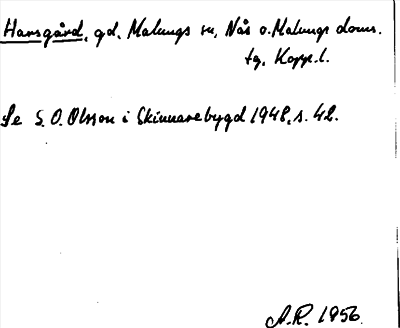 Hansgård, gd, Malungs sn, Nås o. Malungs doms.
tg, Kopp. l.
Se S. O. Olsson i Skinnarebygd 1948, s. 42.
A.R. 1956